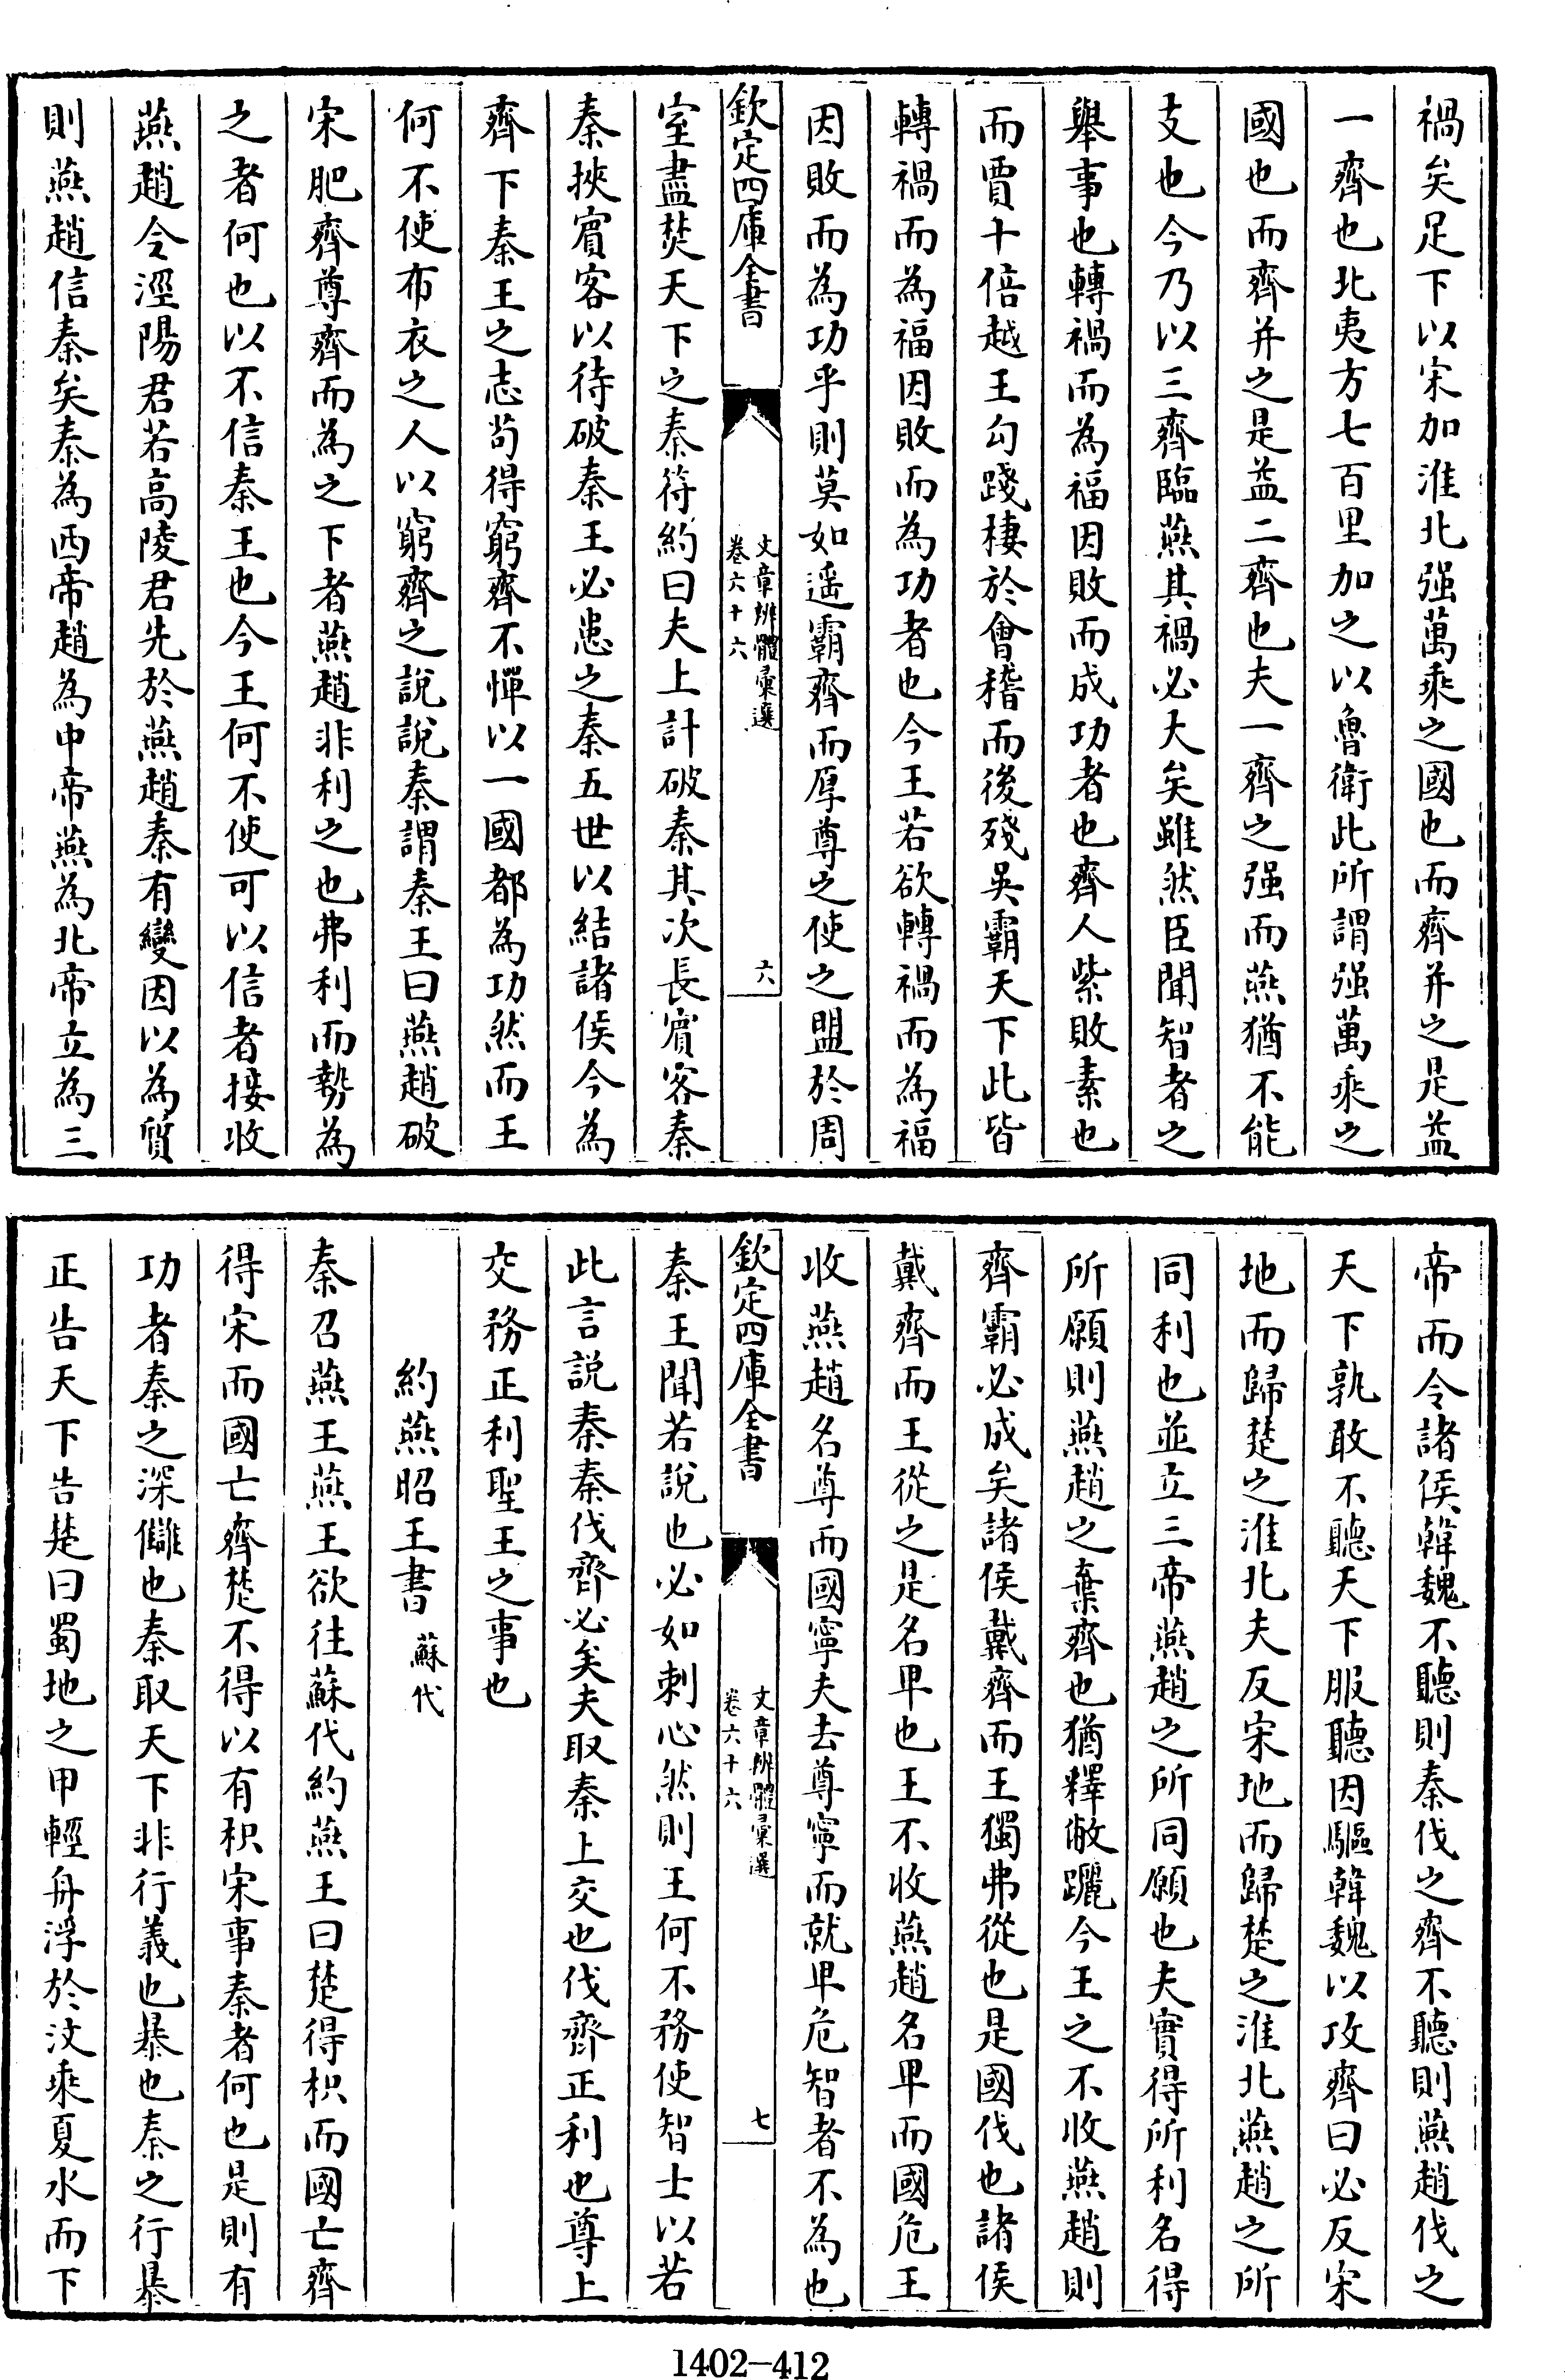 禍矣足下以宋加淮北强萬乘之國也而齊并之是益
一齊也北夷方七百里加之以魯衛此所謂强萬乘之
國也而齊并之是益二齊也夫一齊之强而燕猶不能
支也今乃以三齊臨燕其禍必大矣雖然臣聞智者之
舉事也轉禍而為福因敗而成功者也齊人紫敗素也
而賈十倍越王勾踐棲於會稽而後殘吳霸天下此皆
轉禍而為福因敗而為功者也今王若欲轉禍而為福
因敗而為功乎則莫如遥霸齊而厚尊之使之盟於周
欽定四庫全書
文章辨體彙選
卷六十六
六
室盡焚天下之秦符約曰夫上計破秦其次長賓客秦
秦挾賓客以待破秦王必患之秦五世以結諸侯今為
齊下秦王之志茍得窮齊不憚以一國都為功然而王
何不使布衣之人以窮齊之說說秦謂秦王曰燕趙破
宋肥齊尊齊而為之下者燕趙非利之也弗利而勢為
之者何也以不信秦王也今王何不使可以信者接收
燕趙令涇陽君若高陵君先於燕趙秦有變因以為質
則燕趙信秦矣秦為西帝趙為中帝燕為北帝立為三
帝而令諸侯韓魏不聽則秦伐之齊不聽則燕趙伐之
天下孰敢不聽天下服聽因驅韓魏以攻齊曰必反宋
地而歸楚之淮北夫反宋地而歸楚之淮北燕趙之所
同利也並立三帝燕趙之所同願也夫實得所利名得
所願則燕趙之棄齊也猶釋敝躧今王之不收燕趙則
齊霸必成矣諸侯戴齊而王獨弗從也是國伐也諸侯
戴齊而王從之是名卑也王不收燕趙名卑而國危王
收燕趙名尊而國寧夫去尊寧而就卑危智者不為也
欽定四庫全書
文章辨體彙選
卷六十六
七
秦王聞若說也必如刺心然則王何不務使智士以若
此言説秦秦伐齊必矣夫取秦上交也伐齊正利也尊上
交務正利聖王之事也
約燕昭王書 蘇代
秦召燕王燕王欲往蘇代約燕王曰楚得枳而國亡齊
得宋而國亡齊楚不得以有枳宋事秦者何也是則有
功者秦之深讎也秦取天下非行義也暴也秦之行暴
正告天下告楚曰蜀地之甲輕舟浮於汶乘夏水而下
1402-412